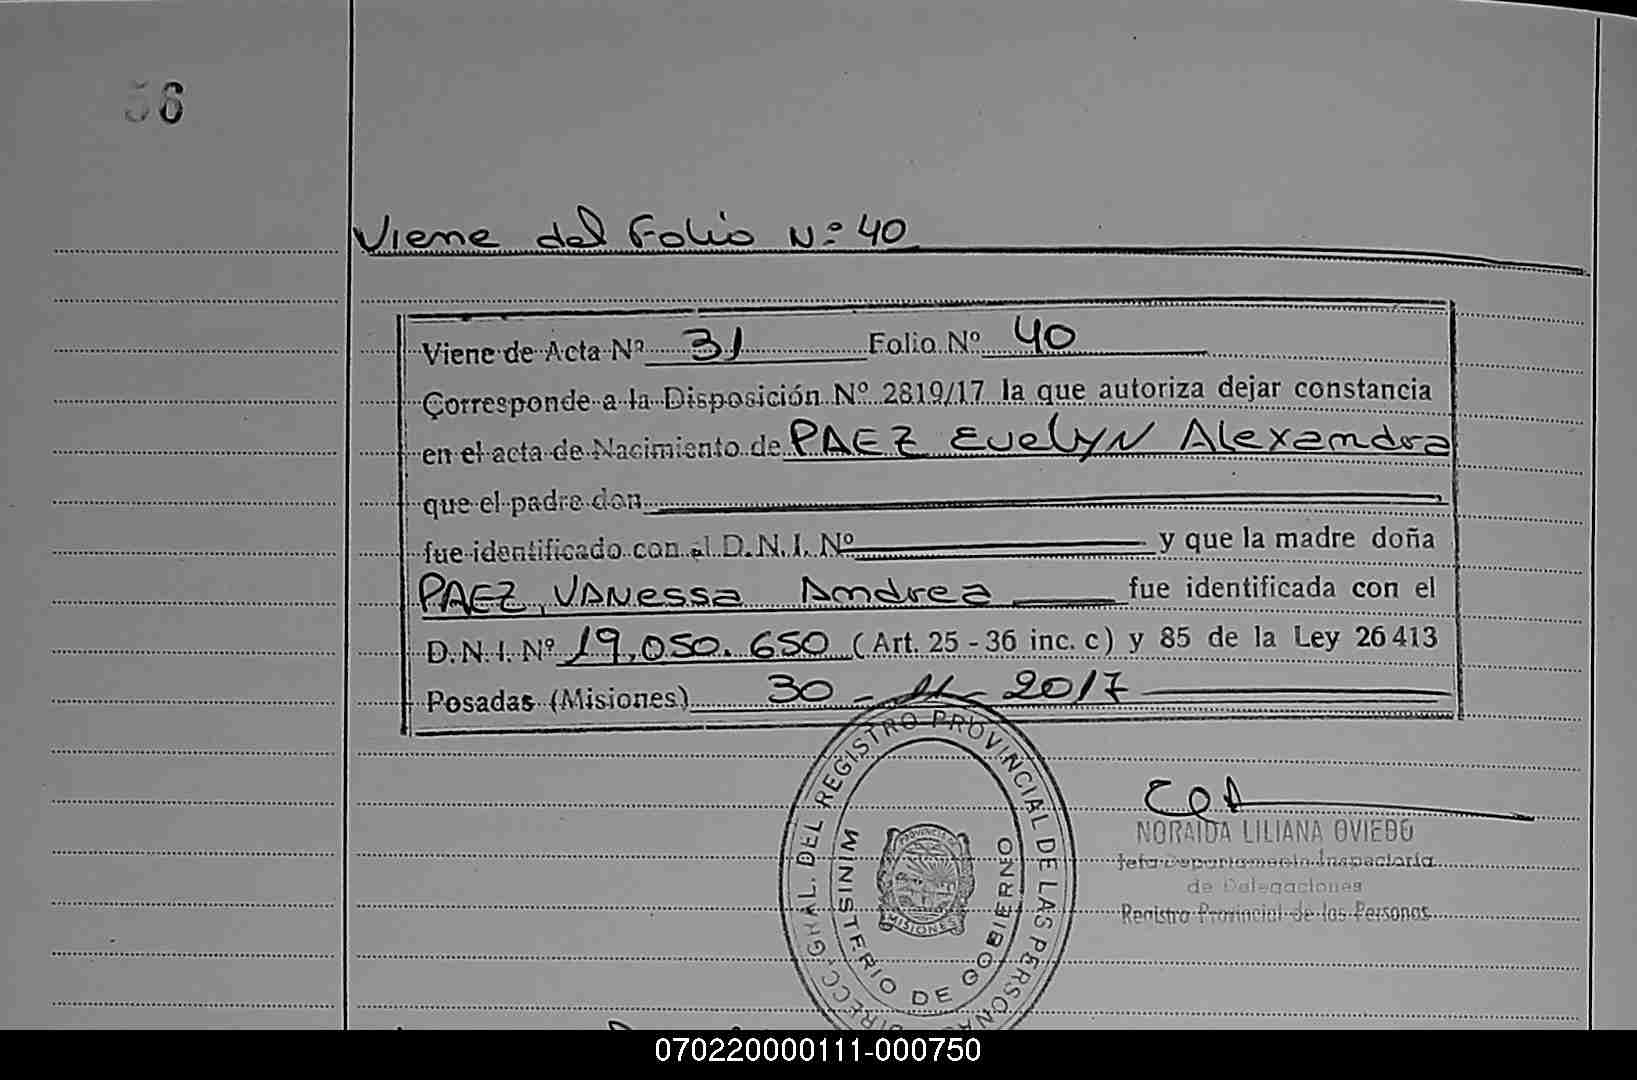 56
Viene del Folio Nº 40
Viene de Acta Nº 31 Folio Nº 40
Corresponde a la Disposición Nº 2819/17 la que autoriza dejar constancia
en el acta de Nacimiento de PAEZ Evelyn Alexandra
que el padre don
fue identificado con el D.N.I. Nº y que la madre doña
PAEZ, VANessa Andrea fue identificada con el
D.N.I. Nº 19.050.650 (Art. 25 - 36 inc. c) y 85 de la Ley 26413
Posadas (Misiones) 30 - 11 - 2017
DIRECC. GRAL. DEL REGISTRO PROVINCIAL DE LAS PERSONAS
MINISTERIO DE GOBIERNO
PROVINCIA
MISIONES
NORAIDA LILIANA OVIEDO
Jefa Departamento Inspectoría
de Delegaciones
Registro Provincial de las Personas
070220000111-000750